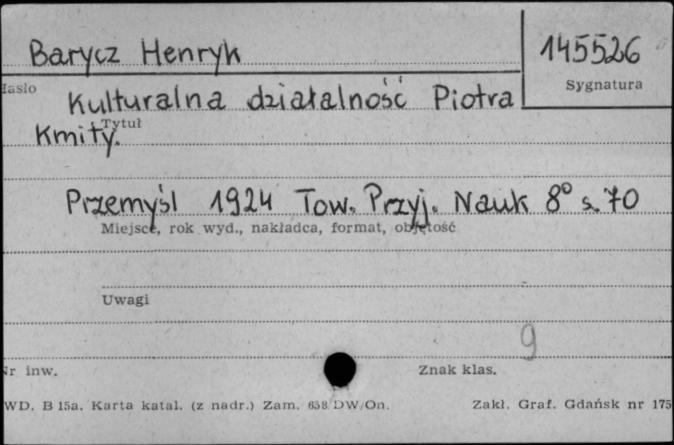 Barycz Henryk
145526
Hasło
Sygnatura
Kulturalna działalność Piotra
Tytuł
Kmity.
Przemyśl 1924 Tow. Przyj. Nauk 8° s. 70
Miejsce, rok wyd., nakładca, format, objętość
Uwagi
9
Nr inw.
Znak klas.
WD. B 15a. Karta katal. (z nadr.) Zam. 658/DW/On.
Zakł. Graf. Gdańsk nr 175